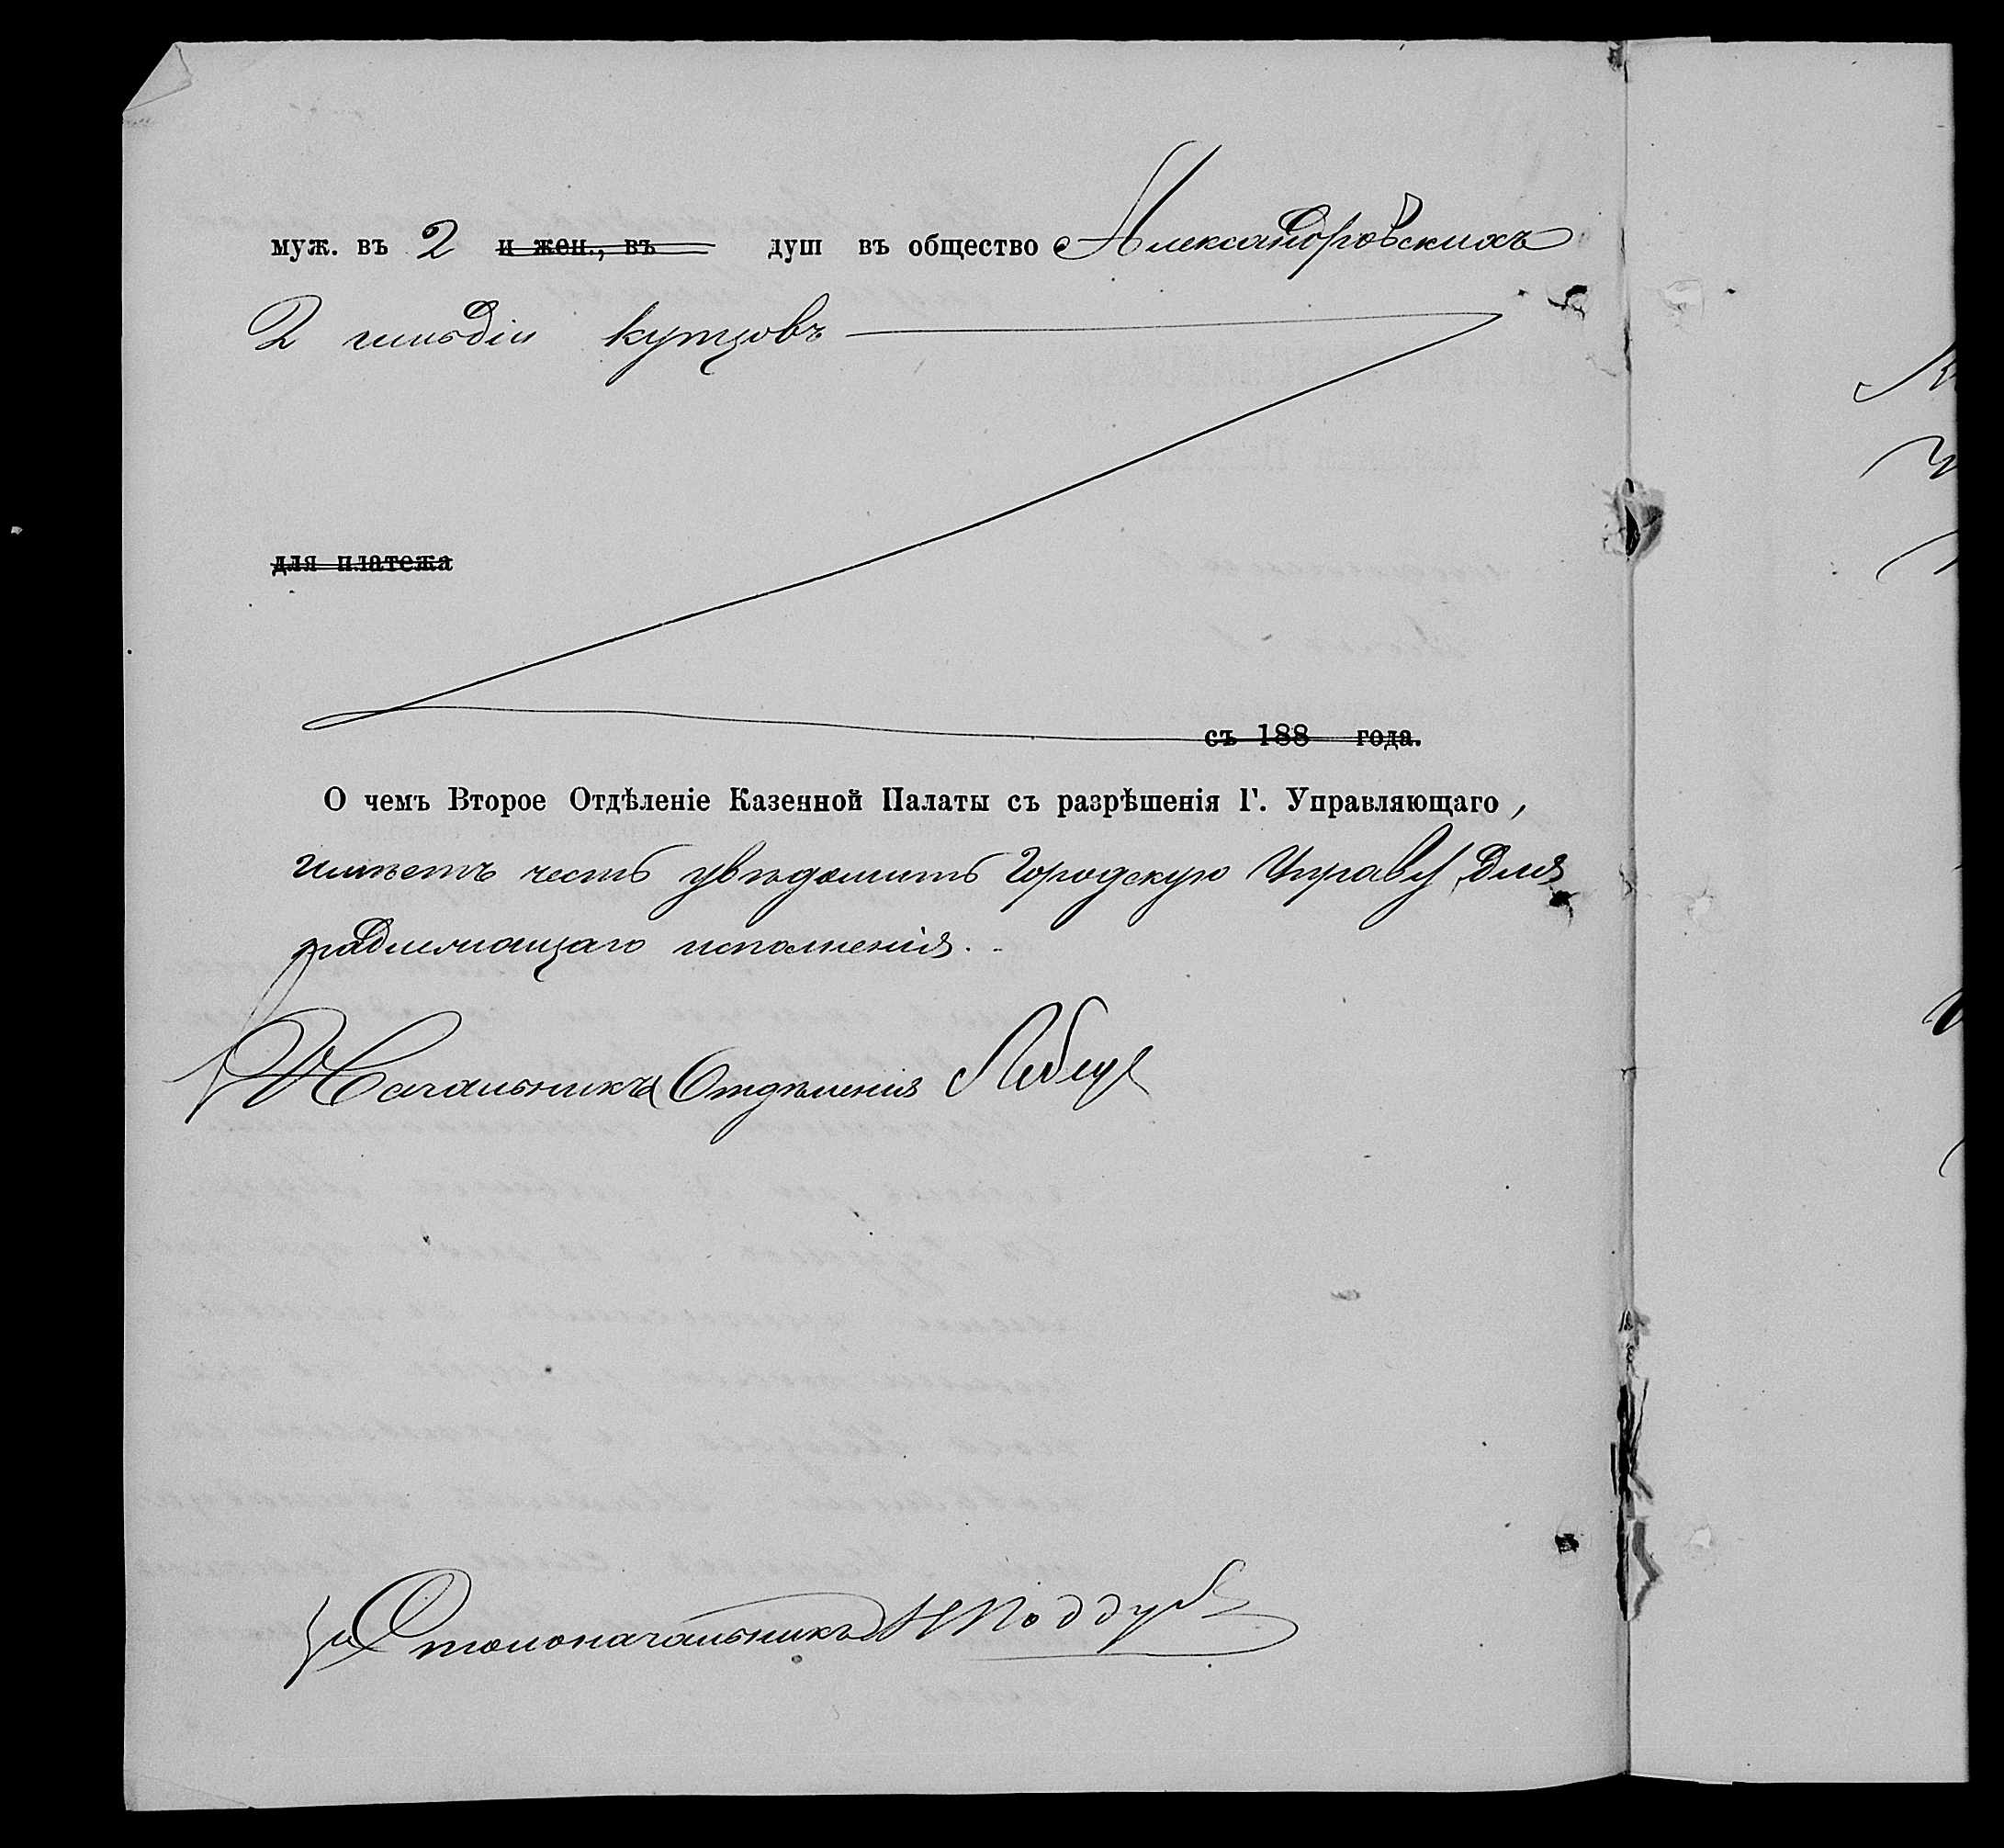 муж. въ 2 и жен., въ душ въ общество Александровскихъ
2 гильдіи купцовъ
для платежа
съ 188 года.
О чемъ Второе Отдѣленіе Казенной Палаты съ разрѣшенія Г. Управляющаго,
имѣетъ честь увѣдомить Городскую Управу, для
надлежащаго исполненія.
Начальникъ Отдѣленія
Столоначальникъ